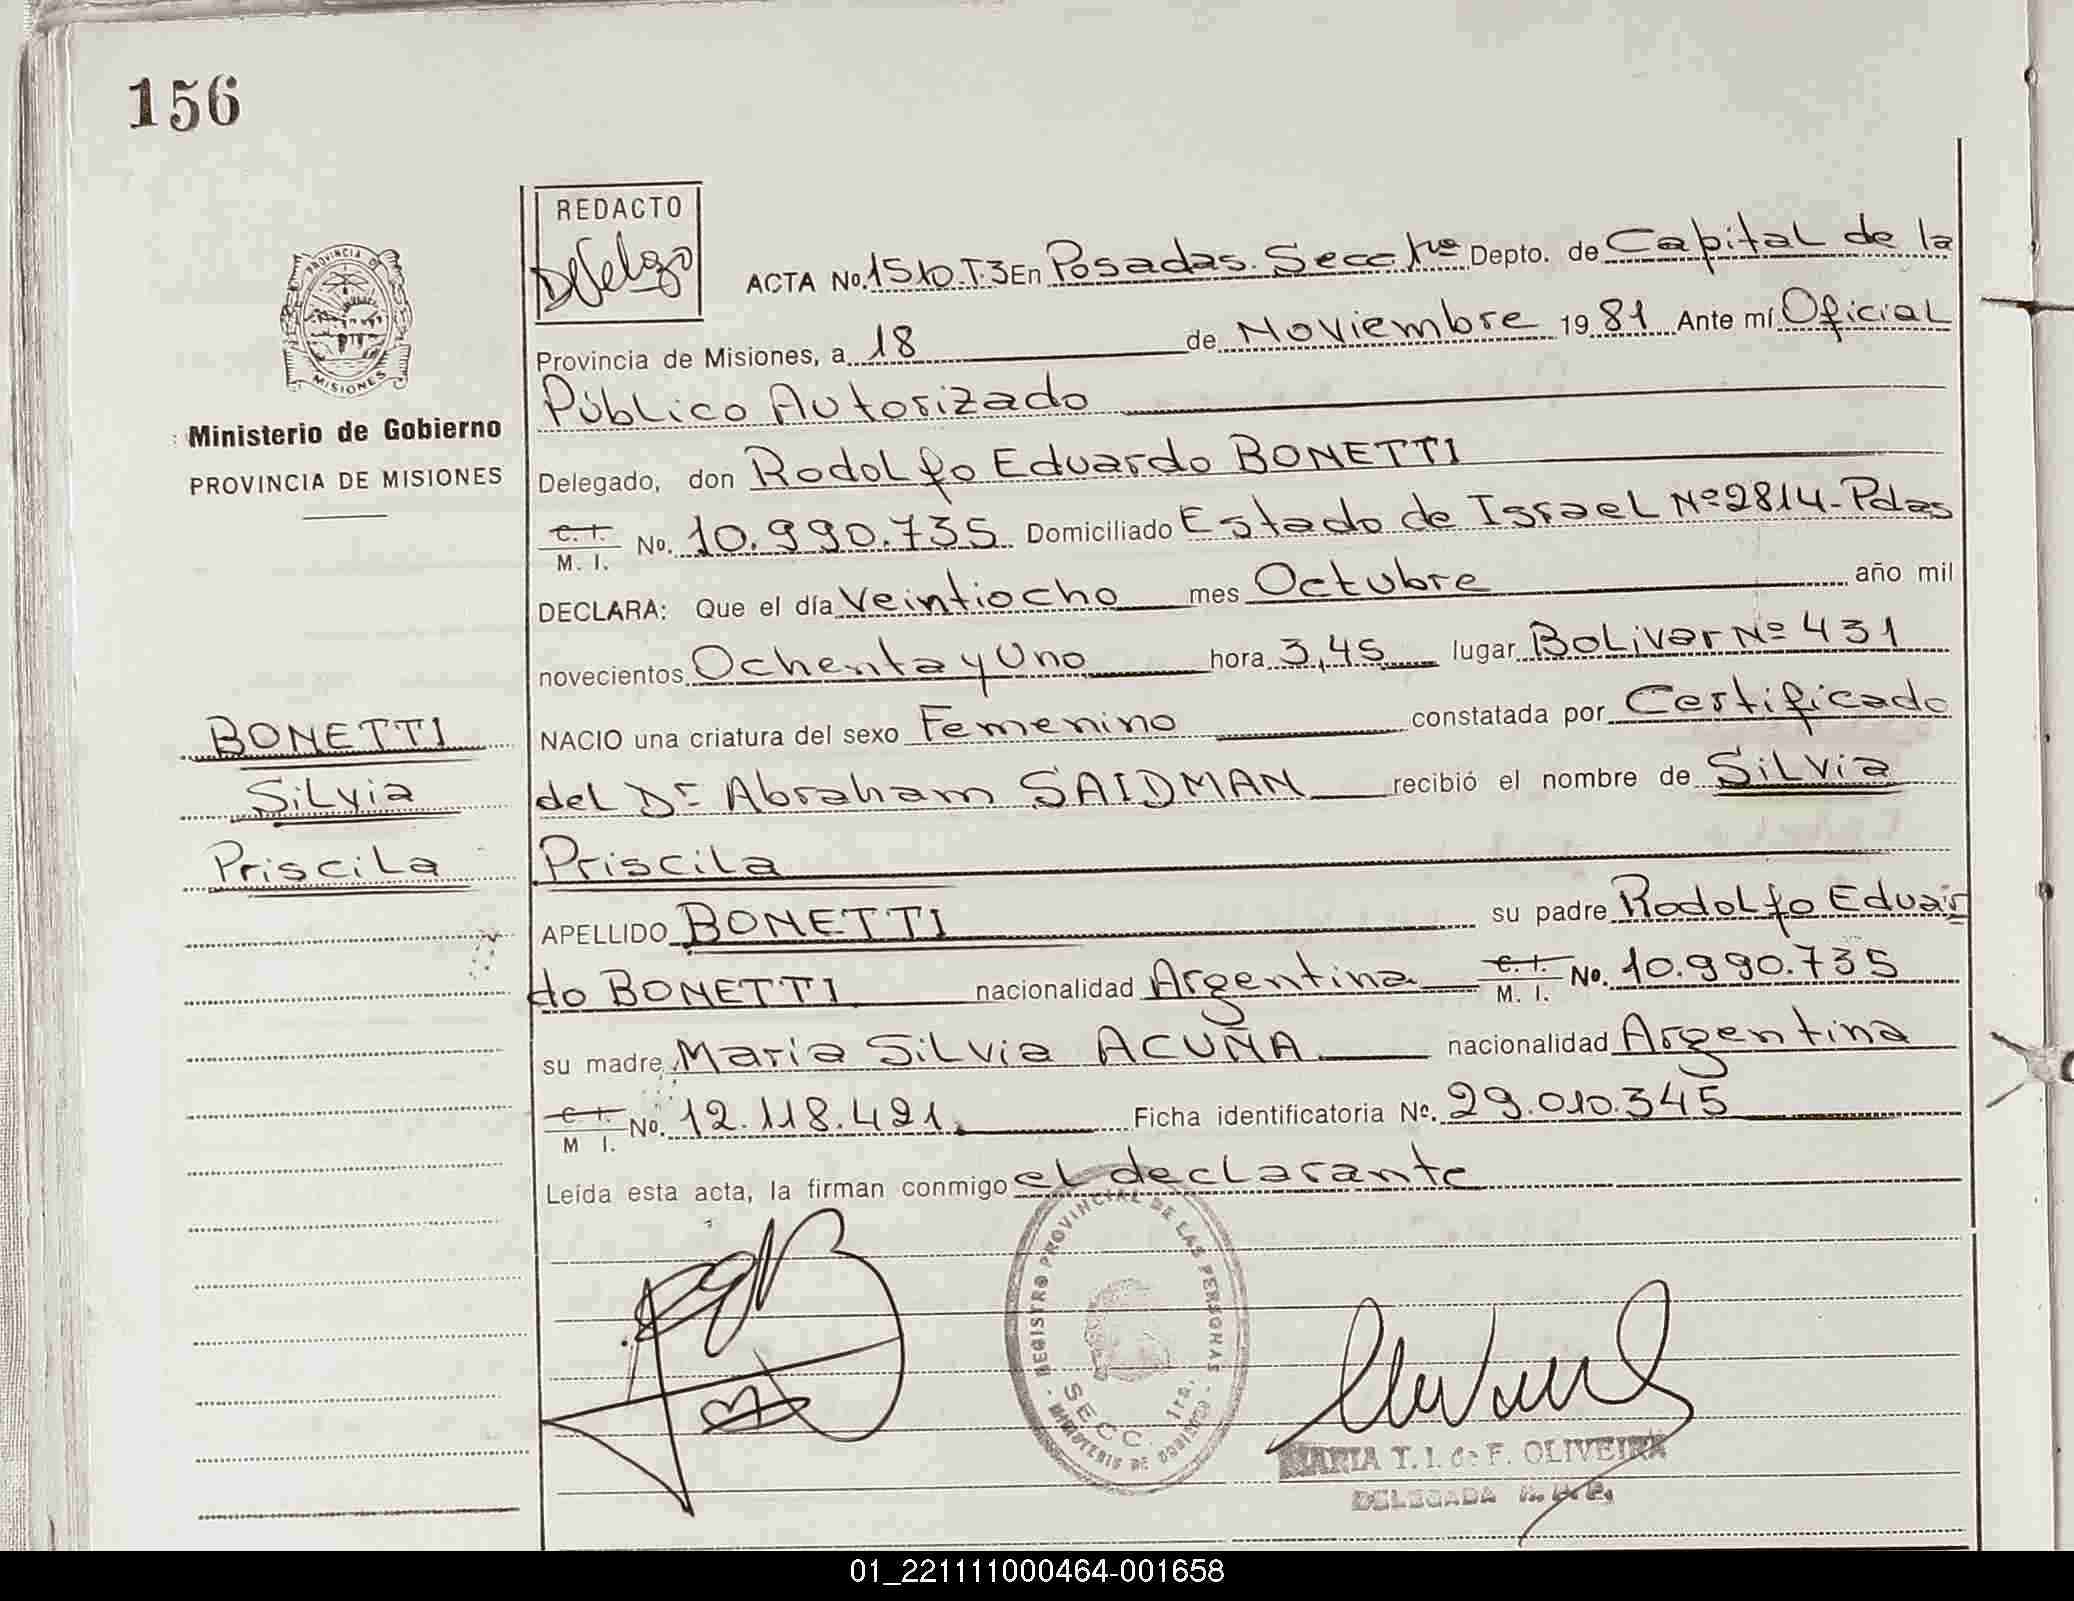 156
REDACTO
PROVINCIA DE
MISIONES
Ministerio de Gobierno
PROVINCIA DE MISIONES
ACTA No. 1510.T.3 En Posadas. Secc 1ra Depto. de Capital de la
Provincia de Misiones, a 18 de Noviembre 1981 Ante mí Oficial
Público Autorizado
Delegado, don Rodolfo Eduardo BONETTI
C. I. / M. I. No. 10.990.735 Domiciliado Estado de Israel Nº 2814-Pdas
DECLARA: Que el día Veintiocho mes Octubre año mil
novecientos Ochenta y Uno hora 3,45 lugar Bolivar Nº 431
NACIO una criatura del sexo Femenino constatada por Certificado
del Dr Abraham SAIDMAN recibió el nombre de Silvia
Priscila
APELLIDO BONETTI su padre Rodolfo Eduar
do BONETTI nacionalidad Argentina C. I. / M. I. No. 10.990.735
su madre Maria Silvia ACUÑA nacionalidad Argentina
C. I. / M I. No. 12.118.421. Ficha identificatoria No. 29.010.345
Leída esta acta, la firman conmigo el declarante
BONETTI
Silvia
Priscila
REGISTRO PROVINCIAL DE LAS PERSONAS
SECC. 1ra.
MINISTERIO DE GOBIERNO
MARIA T. I. de F. OLIVEIRA
DELEGADA
01_221111000464-001658